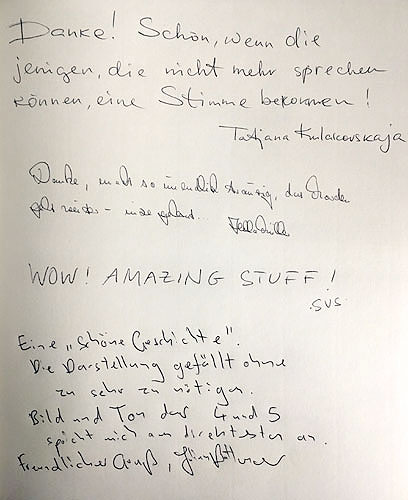 Danke! Schön, wenn die
jenigen, die nicht mehr sprechen
können, eine Stimme bekommen!
Tatjana Kulakovskaja
Danke, so unendlich traurig, das
WOW! AMAZING STUFF!
SVS
Eine „schöne Geschichte".
Die Darstellung gefällt ohne
zu sehr zu nötigen.
Bild und Ton der 4 und 5
spricht mich am direktesten an.
Freundlicher Gruß,